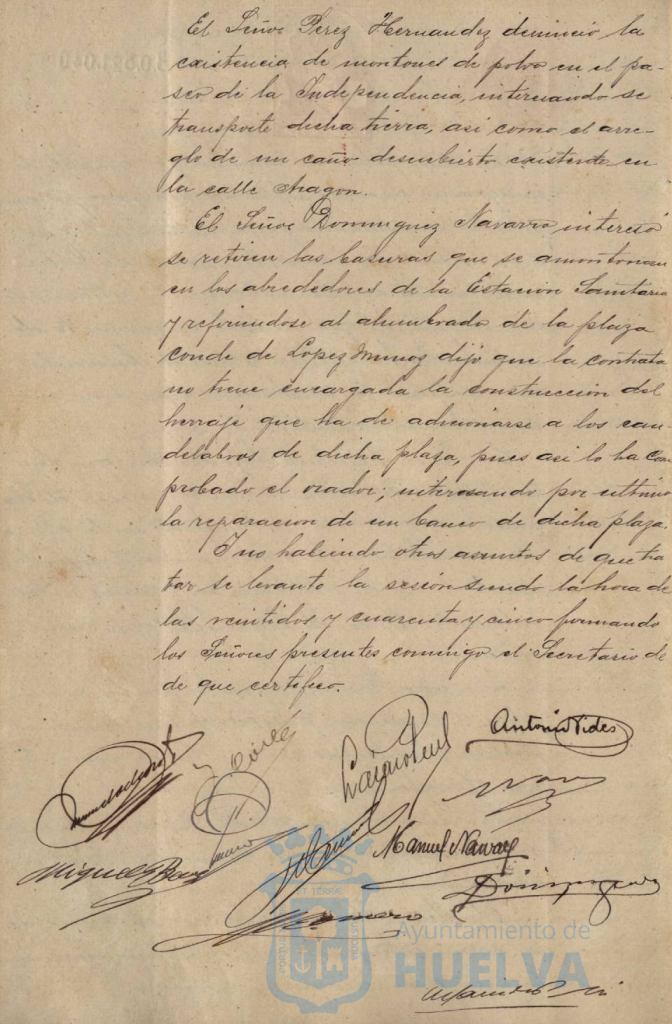 El Señor Perez Hernandez denunció la
existencia de montones de polvo en el pa-
seo de la Independencia, interesando se
transporte dicha tierra, asi como el arre-
glo de un caño descubierto existente en
la calle Aragon.
El Señor Dominguez Navarro interesó
se retiren las basuras que se amontonan
en los alrededores de la Estación Sanitaria
y refiriendose al alumbrado de la plaza
conde de Lopez Muñoz dijo que la contrata
no tiene encargada la construcción del
herraje que ha de adicionarse a los can-
delabros de dicha plaza, pues asi lo ha com
probado el orador; interesando por ultimo
la reparacion de un banco de dicha plaza.
I no habiendo otros asuntos de que tra
tar se levanto la sesión siendo la hora de
las veintidos y cuarenta y cinco firmando
los Señores presentes comigo el Secretario de
de que certifico.
Antonio Vides
Manuel Navarro
Miguel
Dominguez
Ayuntamiento de
HUELVA